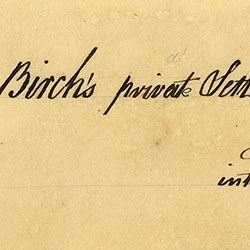 Birch's private Sett
int